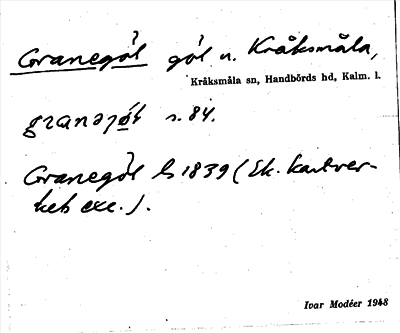 Granegöl göl n. Kråksmåla,
Kråksmåla sn, Handbörds hd, Kalm. l.
s. 84.
Granegöl L 1839 (Ek. kartver-
kets exc.).
Ivar Modéer 1948